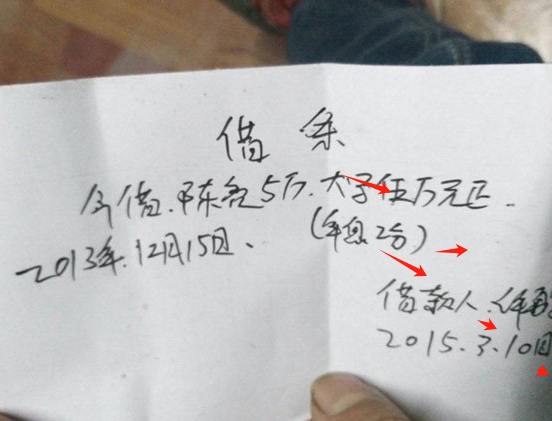 借条
今借.陈亮5万.大写伍万元正.
2013年.12月15日、(年息2分)
借款人.
2015.3.10日